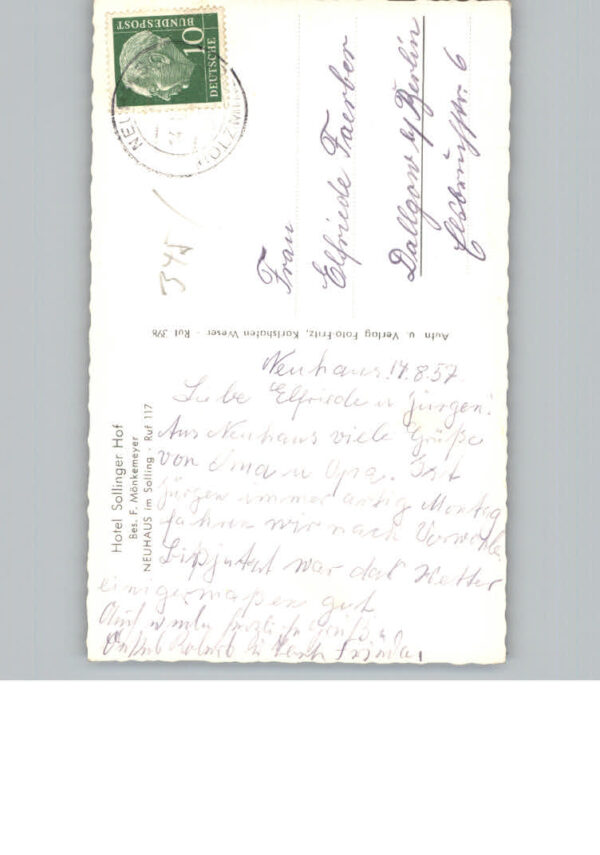 Hotel Sollinger Hof
Bes. F. Mönkemeyer
NEUHAUS im Solling · Ruf 117
Neuhaus. 14.8.57
Liebe Elfriede u Jürgen!
Aus Neuhaus viele Grüße
von Oma u Opa. Ist
Jürgen immer artig Montag
fahren wir nach Vorwohle
Bis jetzt war das Wetter
einigermaßen gut
Auch herzliche Grüße
Onkel u Tante
Autn u. Verlag Foto-Fritz, Karlshafen Weser · Ruf 398
DEUTSCHE
BUNDESPOST
10
NEU
HOLZMIN
345
Frau
Elfriede Faerber
Dallgow b/ Berlin
6